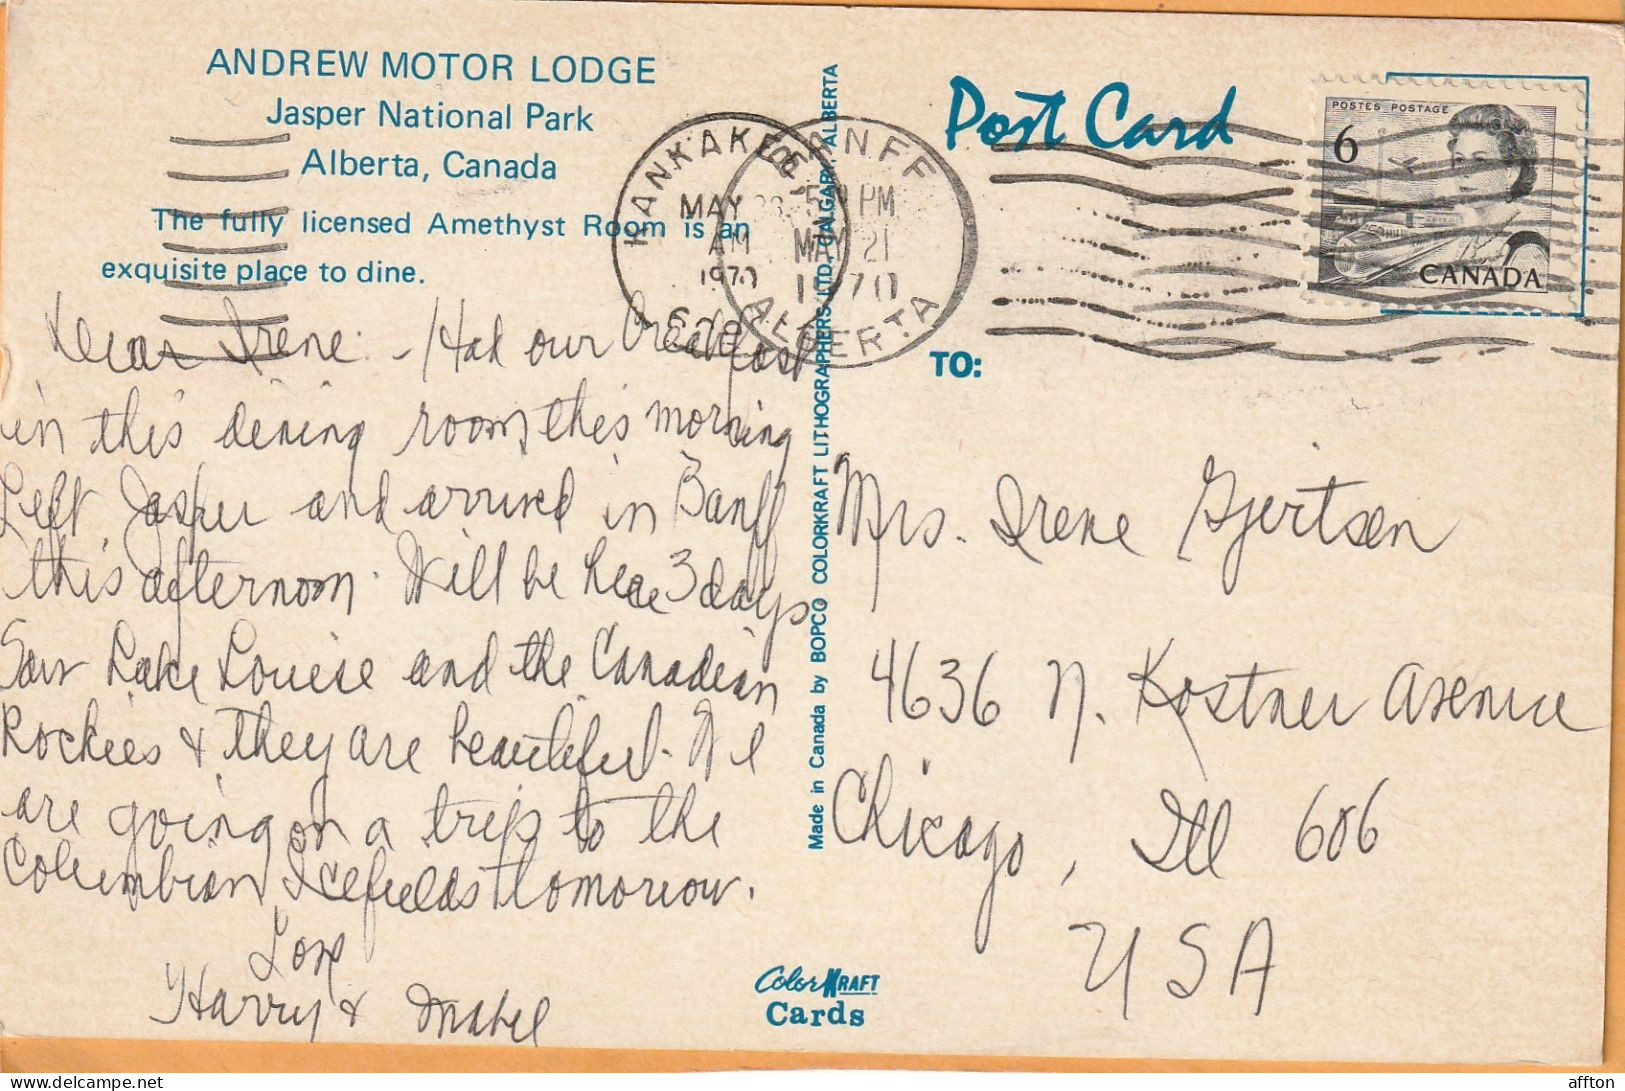 ANDREW MOTOR LODGE
Jasper National Park
Alberta, Canada
The fully licensed Amethyst Room is an
exquisite place to dine.
Dear Irene: - Had our breakfast
in this dining room this morning
Left Jasper and arrived in Banff
this afternoon. Will be here 3 days
Saw Lake Louise and the Canadian
Rockies & they are beautiful. We
are going on a trip to the
Columbian Icefields tomorrow.
Love
Harry & Mabel
KANKAKEE,
MAY
AM
1970
BANFF
PM
MAY 21
1970
ALBERTA
Made in Canada by BOPCO COLORKRAFT LITHOGRAPHERS LTD, CALGARY, ALBERTA
Post Card
POSTES POSTAGE
6
CANADA
TO:
Mrs. Irene Gjertsen
4636 N. Kostner Avenue
Chicago, Ill 606
USA
ColorKRAFT
Cards
affton
delcampe.net